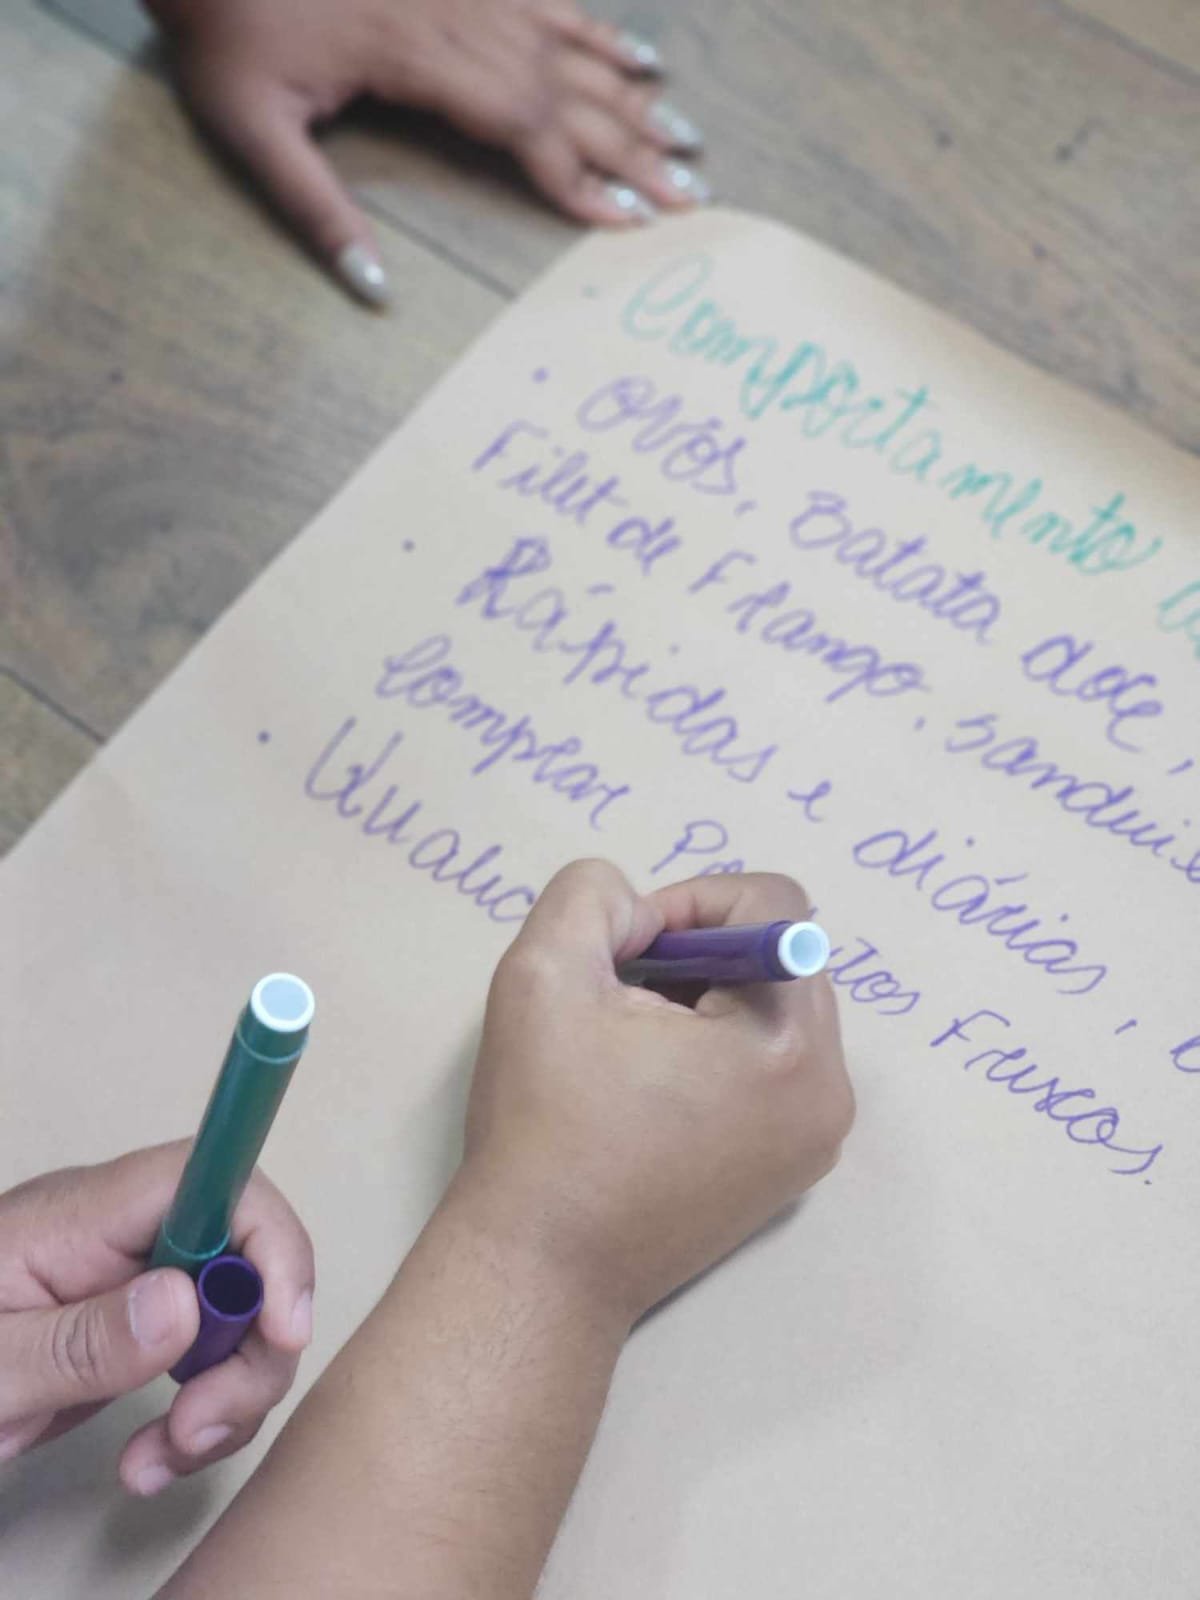 Comportamento
Ovos, Batata doce,
Filet de Frango, sanduí
Rápidas e diárias,
Comprar Produtos Frescos.
Qualid